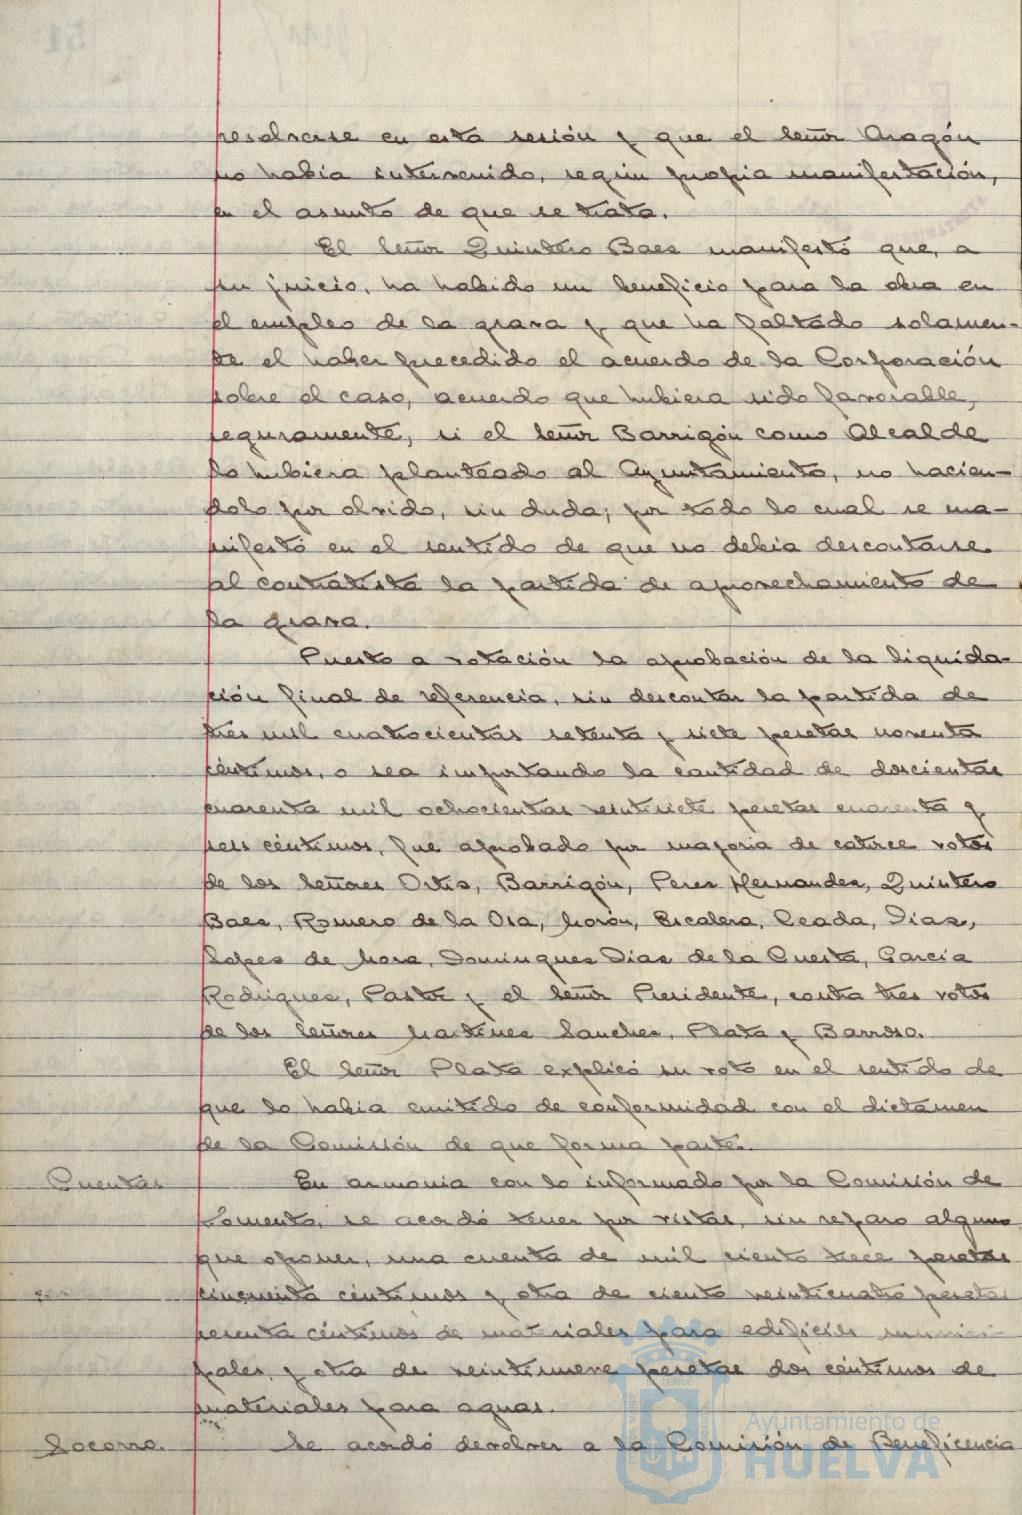 resolverse en esta sesión y que el Señor Aragón
no había intervenido, según propia manifestación,
en el asunto de que se trata.
El Señor Quintero Baez manifestó que, a
su juicio, ha habido un beneficio para la obra en
el empleo de la grava y que ha faltado solamen-
te el haber precedido el acuerdo de la Corporación
sobre el caso, acuerdo que hubiera sido favorable,
seguramente, si el Señor Barrigón como Alcalde
lo hubiera planteado al Ayuntamiento, no hacien-
dolo por olvido, sin duda; por todo lo cual se ma-
nifestó en el sentido de que no debía descontarse
al contratista la partida de aprovechamiento de
la grava.
Puesto a votación la aprobación de la liquida-
ción final de referencia, sin descontar la partida de
tres mil cuatrocientas setenta y siete pesetas noventa
céntimos, o sea importando la cantidad de doscientas
cuarenta mil ochocientas veintisiete pesetas cuarenta y
seis céntimos, fue aprobado por mayoría de catorce votos
de los Señores Ortiz, Barrigón, Perez Hernandez, Quintero
Baez, Romero de la Osa, Morón, Escalera, Ceada, Diaz,
Lopez de Mora, Dominguez Diaz de la Cuesta, Garcia
Rodriguez, Pastor y el Señor Presidente, contra tres votos
de los Señores Martinez Sanchez, Plata y Barroso.
El Señor Plata explicó su voto en el sentido de
que lo había emitido de conformidad con el dictamen
de la Comisión de que forma parte.
Cuentas
En armonia con lo informado por la Comisión de
Fomento, se acordó tener por vistas, sin reparo alguno
que oponer, una cuenta de mil ciento trece pesetas
cincuenta céntimos y otra de ciento veinticuatro pesetas
sesenta céntimos de materiales para edificios munici-
pales, y otra de veintinueve pesetas dos céntimos de
materiales para aguas.
Socorro.
Se acordó devolver a la Comisión de Beneficencia
Ayuntamiento de
HUELVA